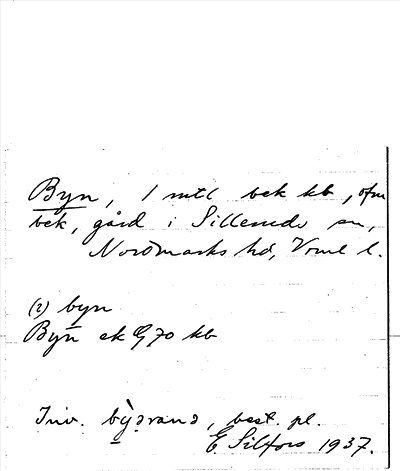 Byn, 1 mtl bek kb, ofm
bek, gård i Sillerud sn,
Nordmarks hd, Vrml l.
(2) byn
Byn ek G70 kb
Inv. bỳəranə, best. pl.
E. Silfors 1937.